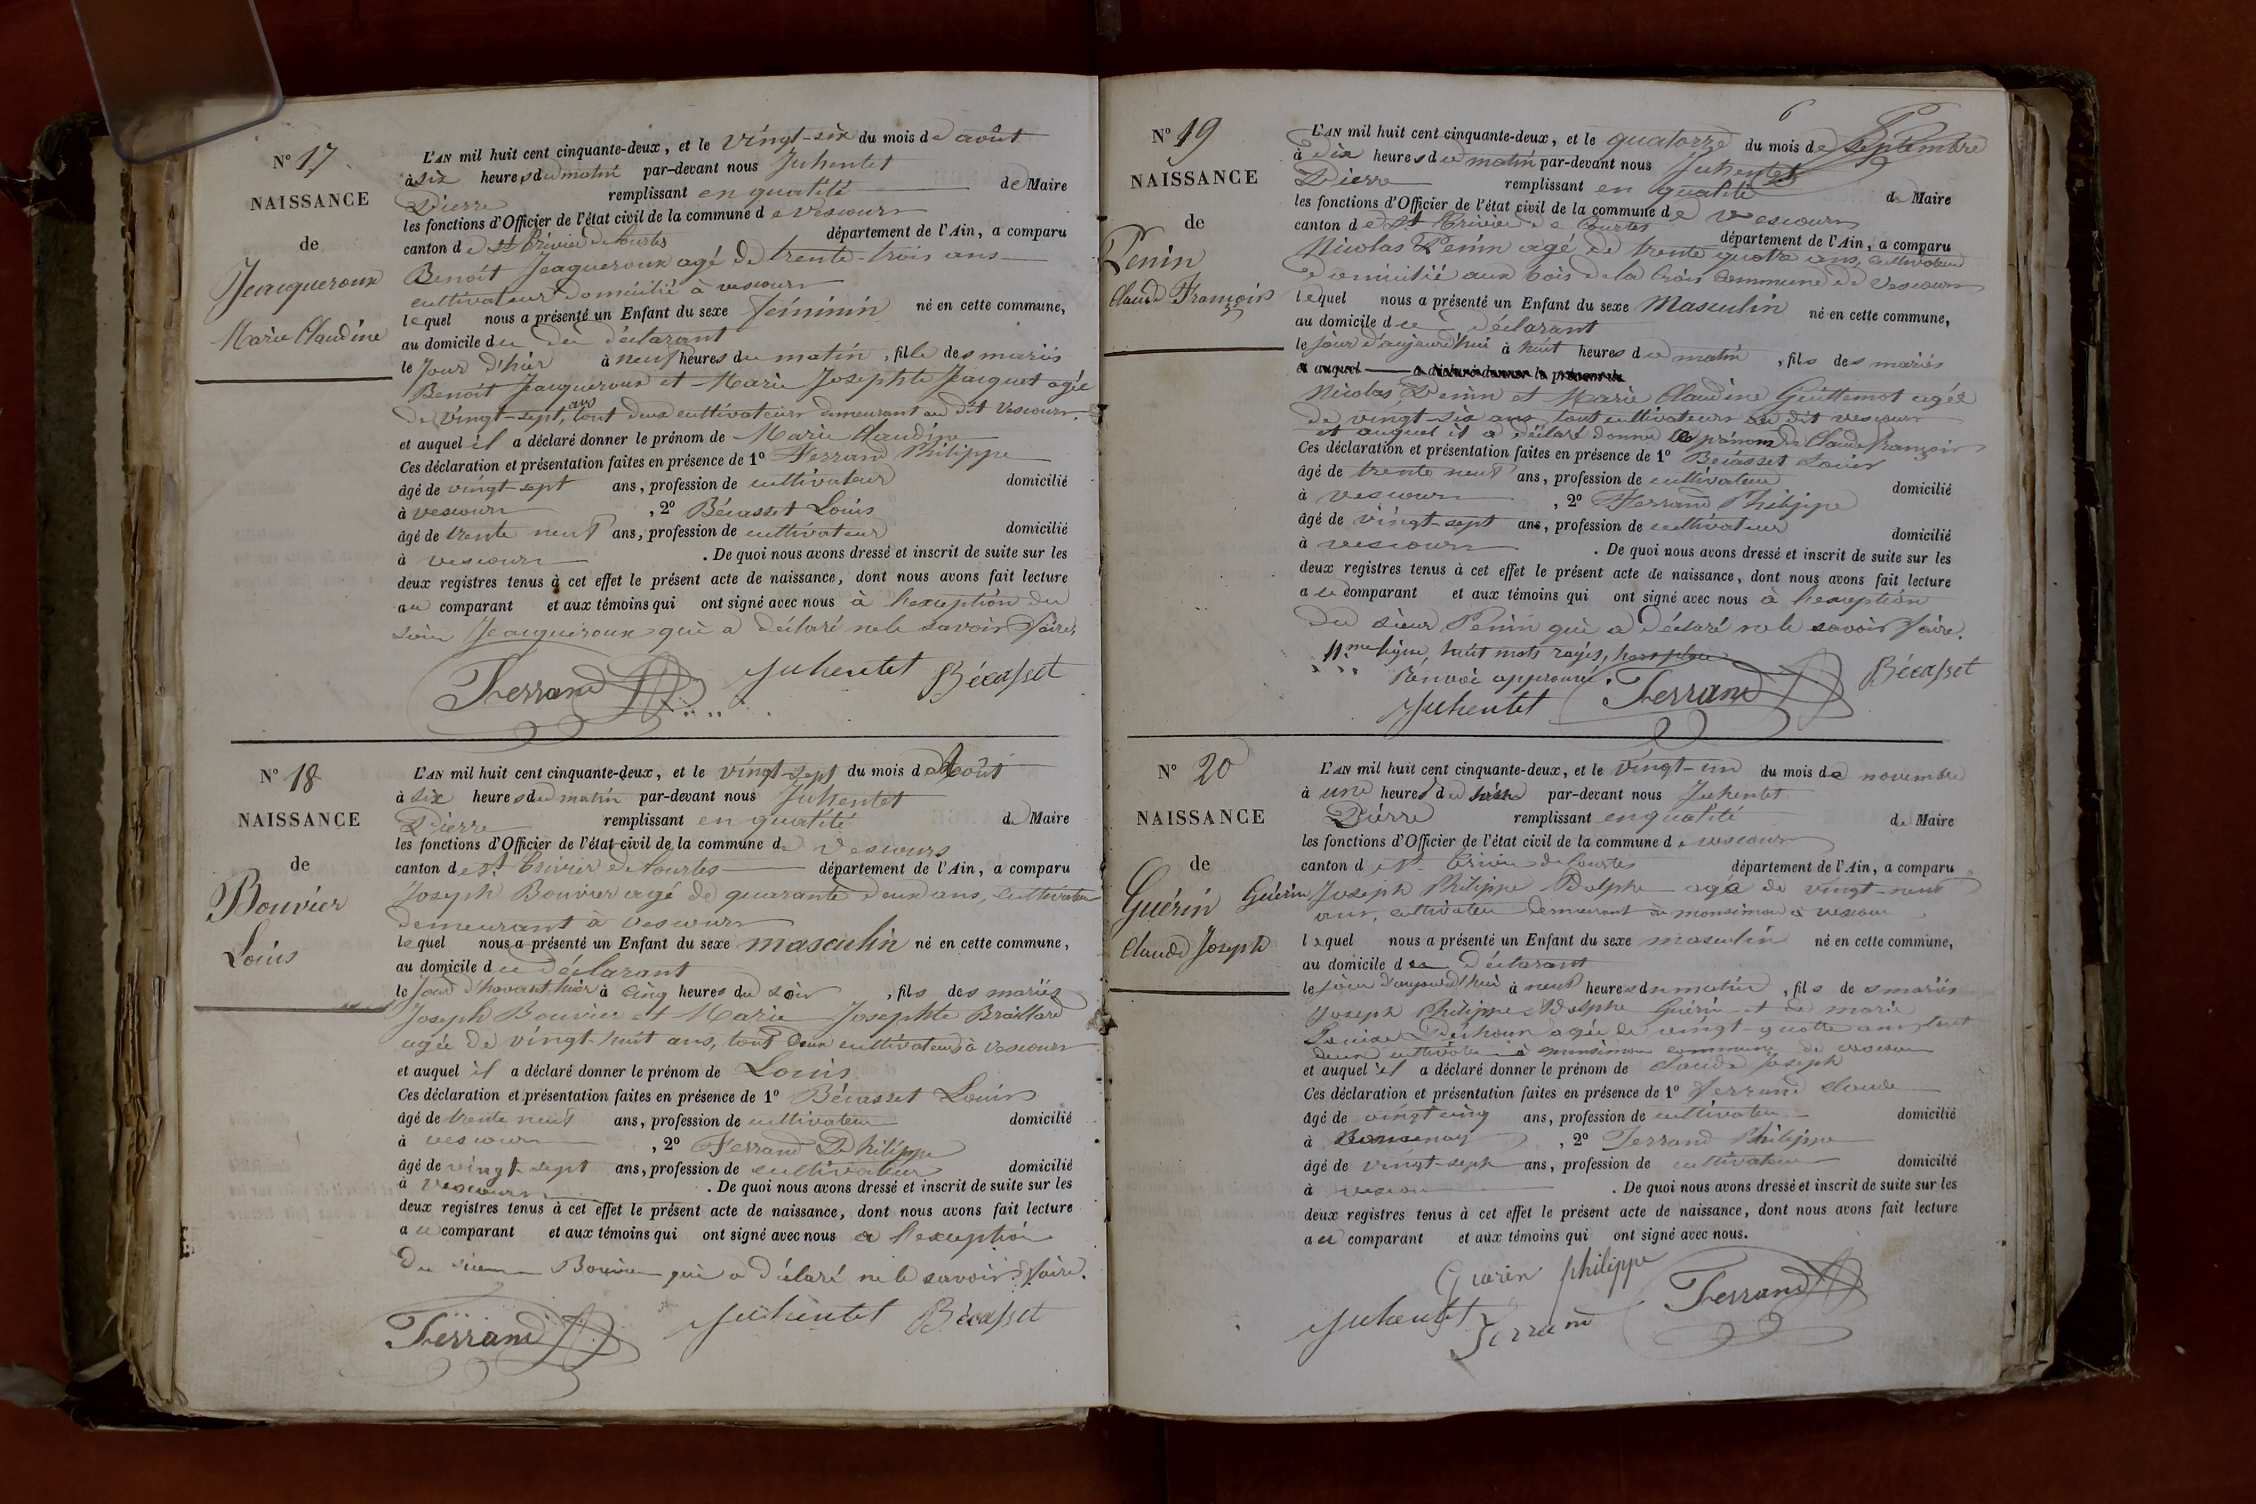 N° 17
NAISSANCE
de
Jeacqueroux
Marie Claudine
L'AN mil huit cent cinquante-deux, et le vingt-six du mois de août
à six heures du matin par-devant nous Juhentet
Pierre remplissant en qualité de Maire
les fonctions d'Officier de l'état civil de la commune de vescours
canton de St Trivier de Courtes département de l'Ain, a comparu
Benoit Jeaqueroux agé de trente-trois ans
cultivateur domicilié à vescours
lequel nous a présenté un Enfant du sexe féminin né en cette commune,
au domicile du déclarant
le jour d'hier à neuf heures du matin, fille des mariés
Benoit Jacqueroux et Marie Josephte Jacquet agée
de vingt-sept ans, tout deux cultivateurs demeurant au dit vescours.
et auquel il a déclaré donner le prénom de Marie Claudine
Ces déclaration et présentation faites en présence de 1° Ferrand Philippe
âgé de vingt-sept ans, profession de cultivateur domicilié
à vescours, 2° Bécasset Louis
âgé de trente neuf ans, profession de cultivateur domicilié
à vescours. De quoi nous avons dressé et inscrit de suite sur les
deux registres tenus à cet effet le présent acte de naissance, dont nous avons fait lecture
au comparant et aux témoins qui ont signé avec nous à l'exception du
sieur Jeacqueroux qui a déclaré ne le savoir faire,
Ferrand Juhentet Bécasset
N° 18
NAISSANCE
de
Bouvier
Louis
L'AN mil huit cent cinquante-deux, et le vingt-sept du mois d'Août
à six heures du matin par-devant nous Juhentet
Pierre remplissant en qualité de Maire
les fonctions d'Officier de l'état civil de la commune de vescours
canton de St. Trivier de Courtes département de l'Ain, a comparu
Joseph Bouvier agé de quarante deux ans, cultivateur
demeurant à vescours
lequel nous a présenté un Enfant du sexe masculin né en cette commune,
au domicile du déclarant
le jour d'havant hier à cinq heures du soir, fils des mariés
Joseph Bouvier et Marie Josephte Braillard
agée de vingt-huit ans, tout deux cultivateurs à vescours
et auquel il a déclaré donner le prénom de Louis
Ces déclaration et présentation faites en présence de 1° Bécasset Louis
âgé de trente neuf ans, profession de cultivateur domicilié
à vescours, 2° Ferrand Philippe
âgé de vingt-sept ans, profession de cultivateur domicilié
à vescours. De quoi nous avons dressé et inscrit de suite sur les
deux registres tenus à cet effet le présent acte de naissance, dont nous avons fait lecture
au comparant et aux témoins qui ont signé avec nous à l'exception
du sieur Bouvier qui a déclaré ne le savoir faire.
Ferrand Juhentet Bécasset
6
N° 19
NAISSANCE
de
Penin
Claude François
L'AN mil huit cent cinquante-deux, et le quatorze du mois de Septembre
à dix heures du matin par-devant nous Juhentet
Pierre remplissant en qualité de Maire
les fonctions d'Officier de l'état civil de la commune de vescours
canton de St Trivier de Courtes département de l'Ain, a comparu
Nicolas Penin agé de trente quatre ans, cultivateur
domicilié aux bois de la Croix commune de Vescours
lequel nous a présenté un Enfant du sexe Masculin né en cette commune,
au domicile du déclarant
le jour d'aujourd'hui à huit heures du matin, fils des mariés
et auquel a déclaré donner le prénom de
Nicolas Penin et Marie Claudine Guillemot agée
de vingt-six ans tout cultivateurs au dit vescours
et auquel il a déclaré donner les prénoms de Claude François
Ces déclaration et présentation faites en présence de 1° Bécasset Louis
âgé de trente neuf ans, profession de cultivateur domicilié
à vescours, 2° Ferrand Philippe
âgé de vingt-sept ans, profession de cultivateur domicilié
à vescours. De quoi nous avons dressé et inscrit de suite sur les
deux registres tenus à cet effet le présent acte de naissance, dont nous avons fait lecture
au comparant et aux témoins qui ont signé avec nous à l'exception
du sieur Penin qui a déclaré ne le savoir faire.
11me ligne, huit mots rayés,
Renvoi approuvé.
Juhentet Ferrand Bécasset
N° 20
NAISSANCE
de
Guérin
Claude Joseph
L'AN mil huit cent cinquante-deux, et le vingt-un du mois de novembre
à une heures du soir par-devant nous Juhentet
Pierre remplissant en qualité de Maire
les fonctions d'Officier de l'état civil de la commune de vescours
canton de St Trivier de Courtes département de l'Ain, a comparu
Guérin Joseph Philippe Adolphe agé de vingt-neuf
ans, cultivateur demeurant à monsimon à vescours
lequel nous a présenté un Enfant du sexe masculin né en cette commune,
au domicile du déclarant
le jour d'aujourd'hui à neuf heures du matin, fils des mariés
Joseph Philippe Adolphe Guérin et de marie
Louise agée de vingt-quatre ans tout
deux cultivateurs à monsimon commune de vescours
et auquel il a déclaré donner le prénom de Claude Joseph
Ces déclaration et présentation faites en présence de 1° Ferrand claude
âgé de vingt cinq ans, profession de cultivateur domicilié
à, 2° Ferrand Philippe
âgé de vingt-sept ans, profession de cultivateur domicilié
à vescours. De quoi nous avons dressé et inscrit de suite sur les
deux registres tenus à cet effet le présent acte de naissance, dont nous avons fait lecture
au comparant et aux témoins qui ont signé avec nous.
Guérin philippe
Juhentet Ferrand Ferrand